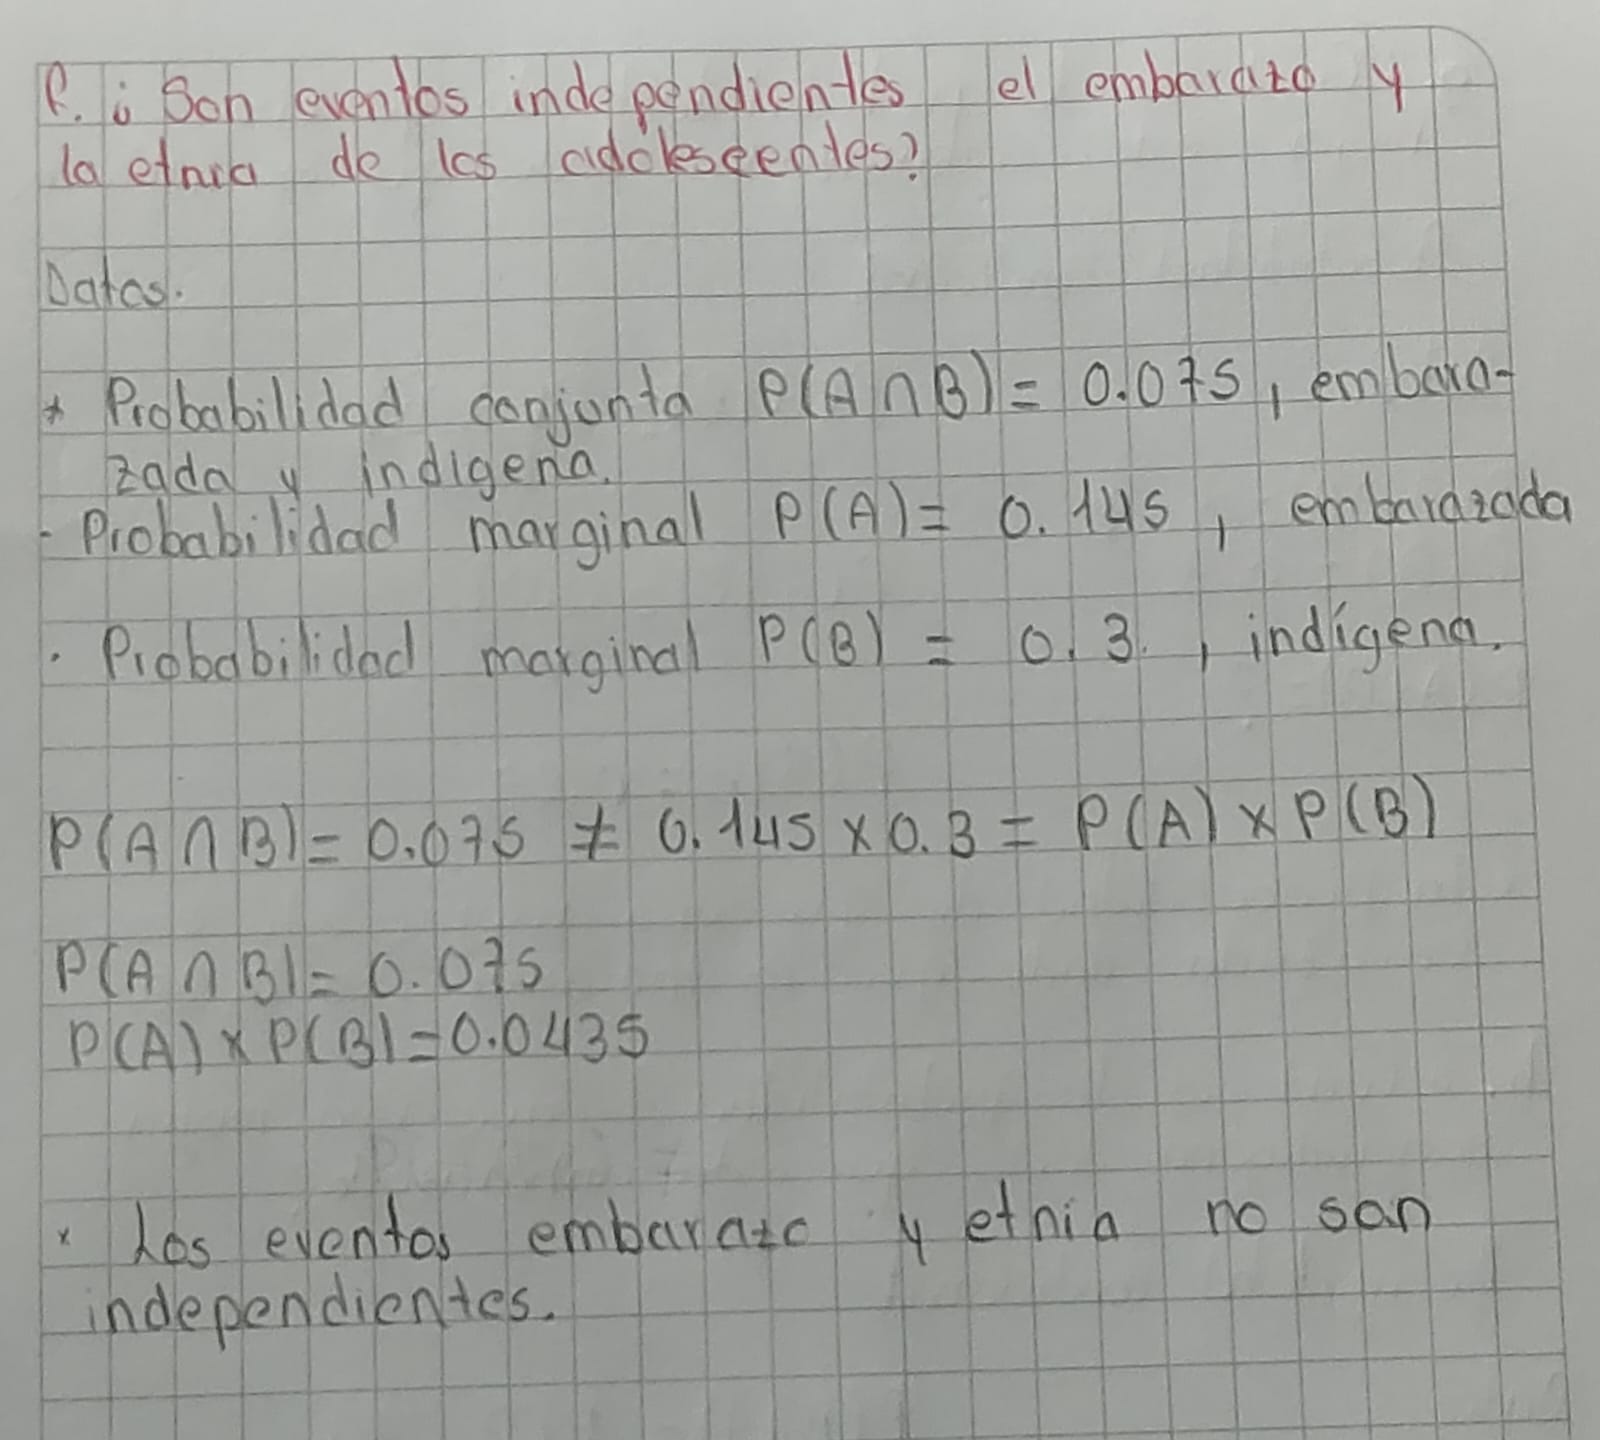 P. ¿ Son eventos independientes el embarazo y
la etnia de los adolescentes?
Datos.
* Probabilidad conjunta P(A ∩ B) = 0.075, embara-
zada y indigena.
- Probabilidad marginal P(A) = 0.145, embarazada
· Probabilidad marginal P(B) = 0.3., indígena.
P(A ∩ B) = 0.075 ≠ 0.145 x 0.3 = P(A) x P(B)
P(A ∩ B) = 0.075
P(A) x P(B) = 0.0435
x Los eventos embarazo y etnia no son
independientes.